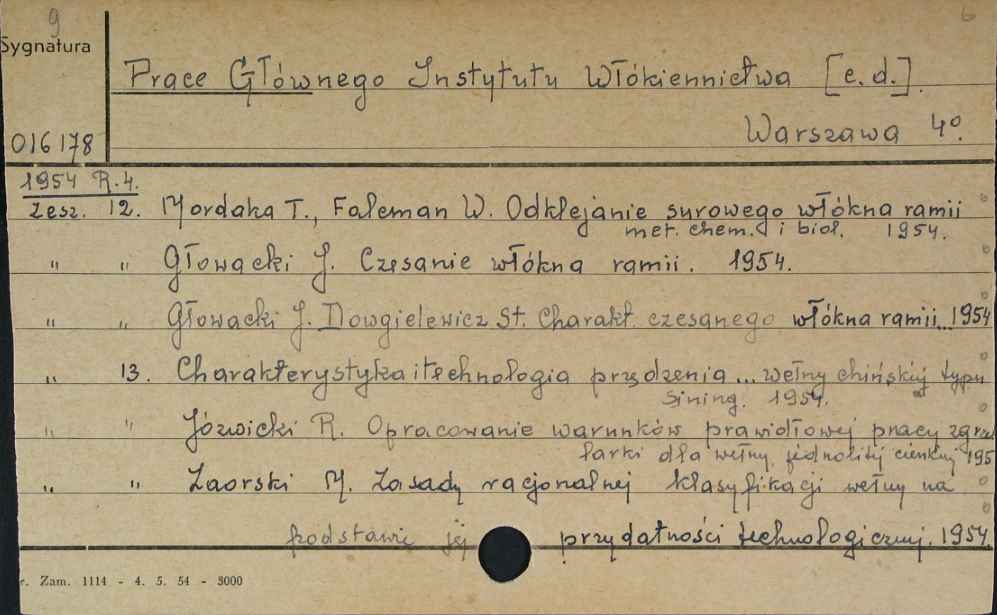 9 6
Sygnatura
Prace Głównego Instytutu Włókiennictwa [c.d.].
016178 Warszawa 4º.
1954 R.4.
Zesz. 12. Mordaka T., Faleman W. Odklejanie surowego włókna ramii
met. chem. i biol. 1954.
" " Głowacki J. Czesanie włókna ramii. 1954.
" " Głowacki J. Dowgielewicz St. Charakt. czesanego włókna ramii... 1954
" 13. Charakterystyka i technologia przędzenia ... wełny chińskiej typu
Sining. 1954.
" " Józwicki R. Opracowanie warunków prawidłowej pracy zgrze
larki dla wełny jednolitej cienkiej 195
" " Zaorski M. Zasady racjonalnej klasyfikacji wełny na
podstawie jej przydatności technologicznej. 1954.
r. Zam. 1114 - 4. 5. 54 - 3000